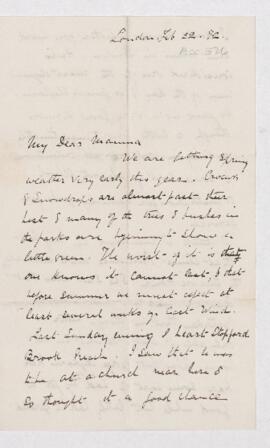 London. Feb 22. 82.
My Dear Mamma
We are getting Spring
weather very early this year. Crocus
& Snowdrops are almost past their
best & many of the trees & bushes in
the parks are beginning to show a
little green. The worst of it is that
one knows it cannot last, & that
before Summer we must expect at
least several weeks of East Wind.
Last Sunday evening I heard Stopford
Brook Preach. I saw that he was
to be at a church near here &
so thought it a good chance